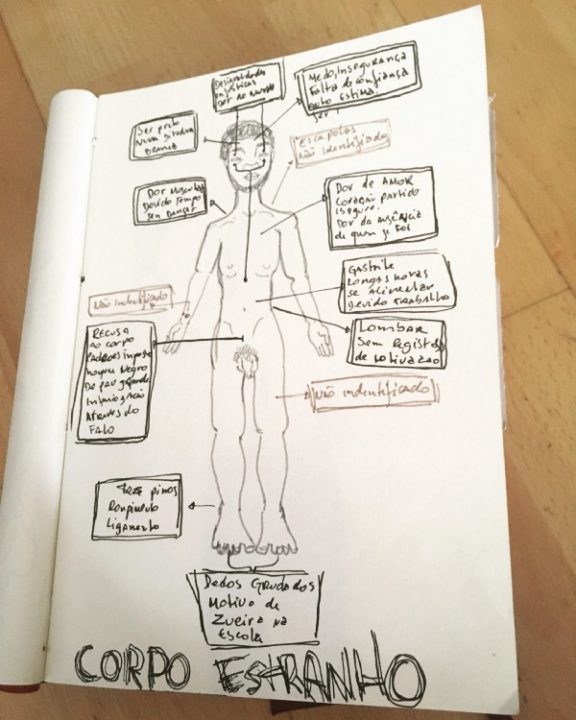 Desigualdades
Dor no mundo
Medo, insegurança
Falta de confiança
auto Estima
Ser preto
numa
branca
Escapolas
não identificado
Dor muscular
Devido tempo
sem Dançar
Dor de AMOR
Coração partido
Dor da Ausência
de quem se foi
Gastrite
Longas horas
se alimentar
devido trabalho
não indentificado
Lombar
Sem Registro
de motivação
Recusa
ao corpo
Padrões imposto
homem Negro
De pau grande
Através do
FALO
não indentificado
Três pinos
Rompimento
Ligamento
Dedos Grudados
Motivo de
Zueira na
Escola
CORPO ESTRANHO